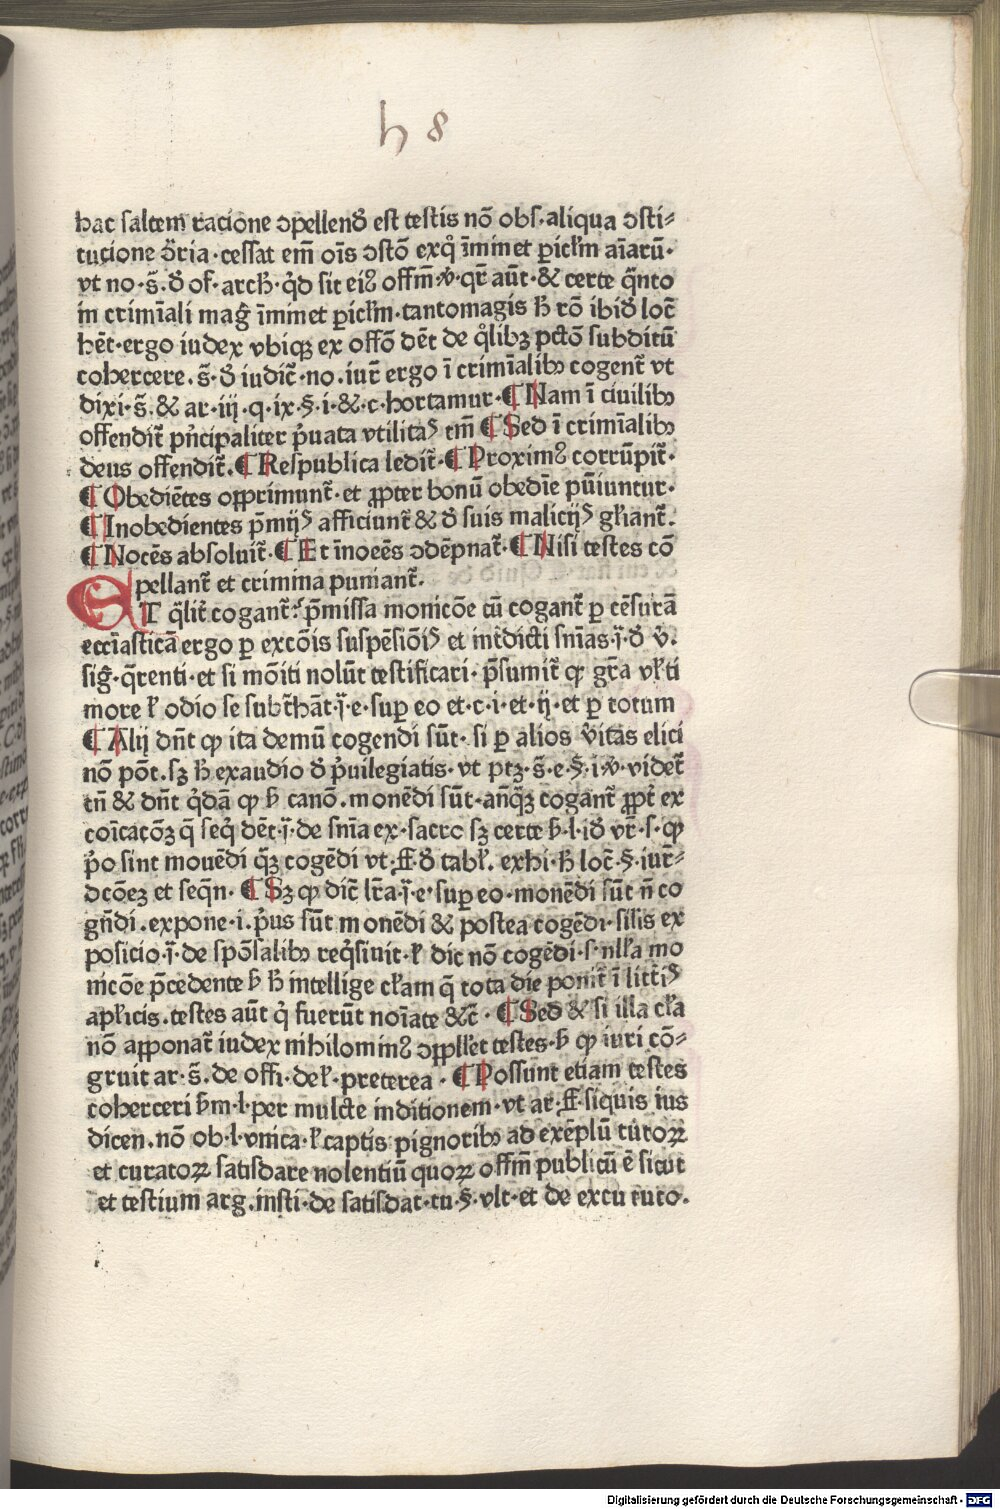 h 8
hac saltem racione ↄpellenð est testis nō obs·aliqua ↄsti⸗
tucione ↄ̃ria·cessat em̄ oīs ↄstō exq̊ īminet ꝑicl̄m aīarū·
vt no·s̄·ð of̄·arcħ·q̇d sit ei⁹ offm̄·v̇·qr̄ aūt·& certe q̄nto
in crimīali maḡ īminet ꝑicl̄m·tantomagis ħ rō ibið loc̄
hēt·ergo iudex vbiqꝫ ex offō dēt de q̊libꝫ pctō subditū
cohercere·s̄·ð iudic̄·no·iur̄ ergo ī crimīalibꝰ cogent̄ vt
dixi·s̄·& ar·iij·q·ix·§·i·&·c·hortamur·¶ Nam ī ciuilibꝰ
offendit̄ pn̄cipaliter p̄uata vtilitaꝰ tm̄ ¶ Sed ī crimīalibꝰ
deus offendit̄·¶ Respublica ledit̄·¶ Proxim⁹ corrūpit̄·
¶ Obediētes opprimunt̄·et ꝓpter bonū obedīe pūiuntur·
¶ Inobedientes p̄mijꝰ afficiunt̄ & ð suis malicijꝰ gl̄iant̄·
¶ Nocēs absoluit̄·¶ Et īnocēs ↄdēpnat̄·¶ Nisi testes cō
pellant̄ et crimina puniant̄·
ET q̄lit̄ cogant̄·p̄missa monicōe cū cogant̄ ꝑ cēsurā
eccīasticā ergo ꝑ excōis suspēsiōiꝰ et int̄dicti snīas·ī·ð v̄·
siḡ·q̄renti·et si mōiti nolūt testificari·p̄sumit̄ ꝙ gr̄a vl̄ ti
more ł odio se subt̄hāt·ī·e·suꝑ eo et·c·i·et·ij·et ꝑ totum
¶ Alij dn̄t ꝙ ita demū cogendi sūt·si ꝑ alios v̄itas elici
nō pōt·sꝫ ħ exaudio ð p̄uilegiatis·vt ptꝫ·s̄·e·§·i·v̇·videt̄
tn̄ & dn̄t q̇dā ꝙ ħ canō·monēdi sūt·anq̄ꝫ cogant̄ ꝓpt̄ ex
coīcacōꝫ q̄ seq̇ dēt·ī·de snīa ex·sacro sꝫ certe ħ·l·ið vr̄·s·ꝙ
p̄o sint mouēdi q̄ꝫ cogēdi vt·ff·ð tabl̄·exhi·ħ loc̄·§·iur̄⸗
ↄcōeꝫ et seqn̄·¶ Sꝫ ꝙ dic̄ lr̄a·ī·e·suꝑ eo·monēdi sūt n̄ co
gn̄di·expone·i·p̄us sūt monēdi & postea cogēdi·silis ex
posicio·ī·de spōsalibꝰ req̇siuit·ł dic nō cogēdi·s·nll̄a mo
nicōe p̄cedente ħ ħ intellige cl̄am q̄ tota die ponit̄ ī litt̄iꝰ
apl̄icis·testes aūt q̇ fuerūt noīate &c̄·¶ Sed & si illa cl̄a
nō apponat̄ iudex nihilomin⁹ ↄppll̄et testes·ħ ꝙ iuri cō⸗
gruit ar·s̄·de offi·del̄·preterea·¶ Possunt etiam testes
coherceri ħm·l·per mulcte inditionem·vt ar·ff·siquis ius
dicen·nō ob·l·vnica·ł captis pignoribꝰ ad exēplū tutoꝝ
et curatoꝝ satisdare nolentiū quoꝝ offm̄ publicū ē sicut
et testium arg·insti·de satisdat·tu·§·vlt·et de excu tuto·
Digitalisierung gefördert durch die Deutsche Forschungsgemeinschaft - DFG